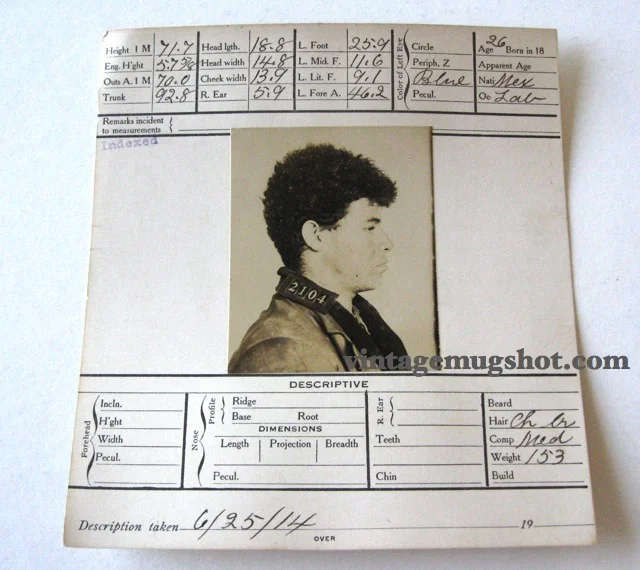 Height 1 M 71.7 Head lgth. 18.8 L. Foot 25.9 Circle Age 26 Born in 18
Eng. H'ght 5.7 5/8 Head width 14.8 L. Mid. F. 11.6 Color of Left Eye Periph, Z Apparent Age
Outs A. 1 M 70.0 Cheek width 13.9 L. Lit. F. 9.1 Blue Nati Mex
Trunk 92.8 R. Ear 5.9 L. Fore A. 46.2 Pecul. Oc Lab
Remarks incident
to measurements
Indexed
2104
vintagemugshot.com
DESCRIPTIVE
Forehead Incln. Nose Profile Ridge R. Ear Beard
H'ght Base Root Hair Ch br
Width DIMENSIONS Teeth Comp Med
Pecul. Length Projection Breadth Weight 153
Pecul. Chin Build
Description taken 6/25/14 19
OVER